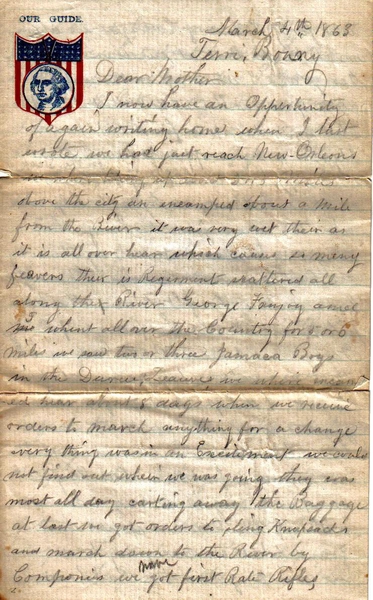 OUR GUIDE.
March 4th 1863
Terre, Bonny
Dear Mother
I now have an Opportunity
of again writing home when I last
wrote we had just reach New-Orleans
above the city an incamped about a mile
from the River it was very wet their as
it is all over hear which causes so many
feavers their is Regiment scattered all
along the River George and
me whent all over the Country for 5 or 6
miles we saw two or three Jamaca Boys
in the
hear about 8 days when we receive
orders to march anything for a change
every thing was in an Excitement we could
not find out wheir we was going they was
most all day carting away the Baggage
at last we got orders to sling Knapsacks
and march down to the River by
Companies we have got first Rate Rifles